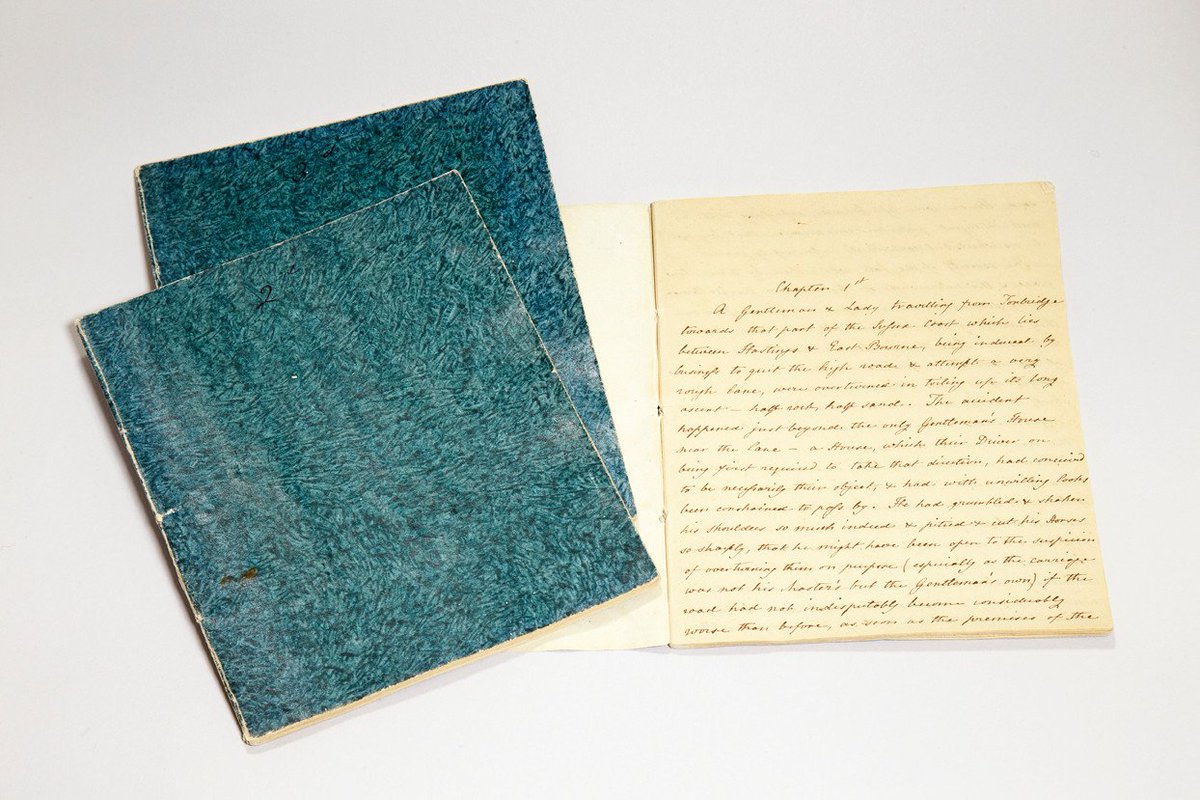 2
Chapter 1st
A Gentleman & Lady travelling from Tonbridge
towards that part of the Suſsex Coast which lies
between Hastings & East Bourne, being induced by
buſineſs to quit the high road & attempt a very
rough lane, were overturned in toiling up its long
ascent – half rock, half sand. The accident
happened just beyond the only Gentleman's House
near the lane – a House, which their Driver on
being first required to take that direction, had conceived
to be neceſsarily their object, & had with unwilling looks
been constrained to paſs by. He had grumbled & shaken
his shoulders so much indeed & pitied & cut his Horses
so sharply, that he might have been open to the suspicion
of overturning them on purpose (especially as the carriage
was not his Master's but the Gentleman's own) if the
road had not indisputably become considerably
worse than before, as soon as the premises of the